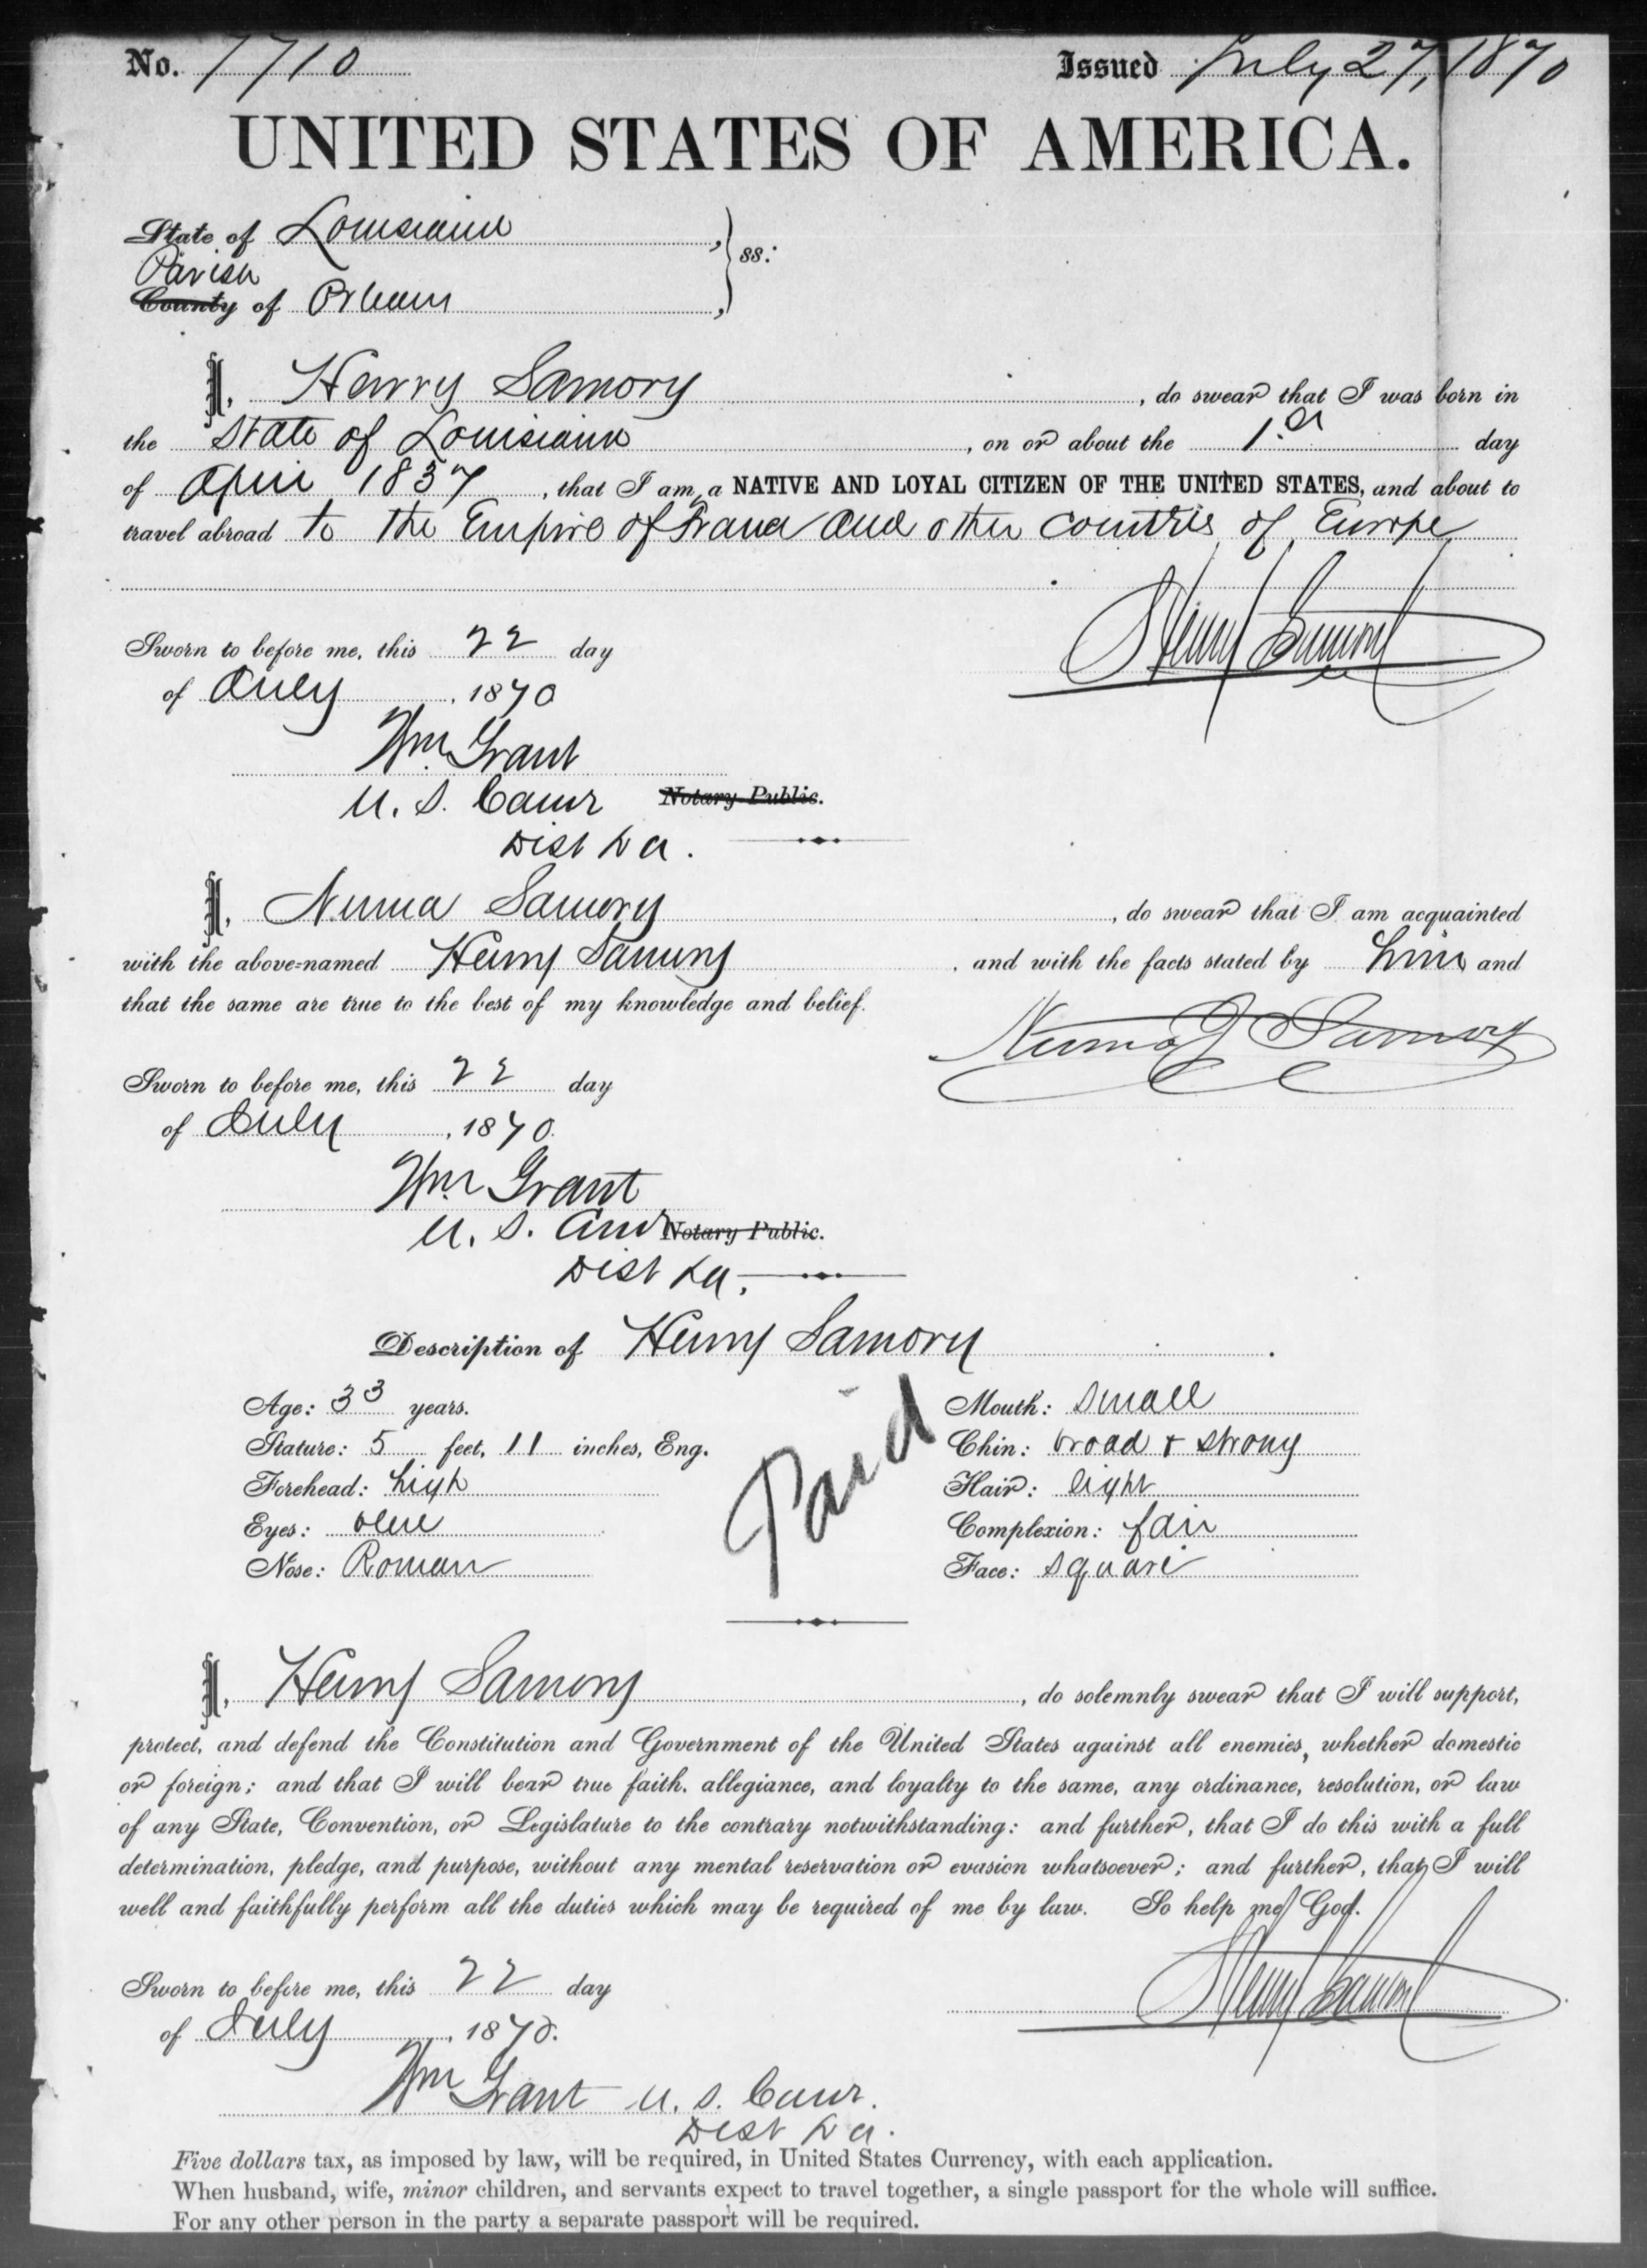 No. 7710 Issued July 27, 1870
UNITED STATES OF AMERICA.
State of Louisiana, } ss:
Parish
County of Orleans,
I, Henry Samory, do swear that I was born in
the State of Louisiana, on or about the 1st day
of April 1837, that I am a NATIVE AND LOYAL CITIZEN OF THE UNITED STATES, and about to
travel abroad to the Empire of France and other countris of Europe
Henry Samory
Sworn to before me, this 22 day
of July, 1870
Wm. Grant
U. S. Comr Notary Public.
Dist La.
I, Numa Samory, do swear that I am acquainted
with the above-named Henry Samory, and with the facts stated by him and
that the same are true to the best of my knowledge and belief.
Numa J Samory
Sworn to before me, this 22 day
of July, 1870.
Wm. Grant
U. S. Comr Notary Public.
Dist La.
Description of Henry Samory.
Age: 33 years. Mouth: small
Stature: 5 feet, 11 inches, Eng. Chin: broad & strong
Forehead: high Hair: light
Eyes: blue Complexion: fair
Nose: Roman Face: square
Paid
I, Henry Samory, do solemnly swear that I will support,
protect, and defend the Constitution and Government of the United States against all enemies, whether domestic
or foreign; and that I will bear true faith, allegiance, and loyalty to the same, any ordinance, resolution, or law
of any State, Convention, or Legislature to the contrary notwithstanding: and further, that I do this with a full
determination, pledge, and purpose, without any mental reservation or evasion whatsoever; and further, that I will
well and faithfully perform all the duties which may be required of me by law. So help me God.
Henry Samory
Sworn to before me, this 22 day
of July, 1870.
Wm Grant U. S. Comr.
Dist La.
Five dollars tax, as imposed by law, will be required, in United States Currency, with each application.
When husband, wife, minor children, and servants expect to travel together, a single passport for the whole will suffice.
For any other person in the party a separate passport will be required.